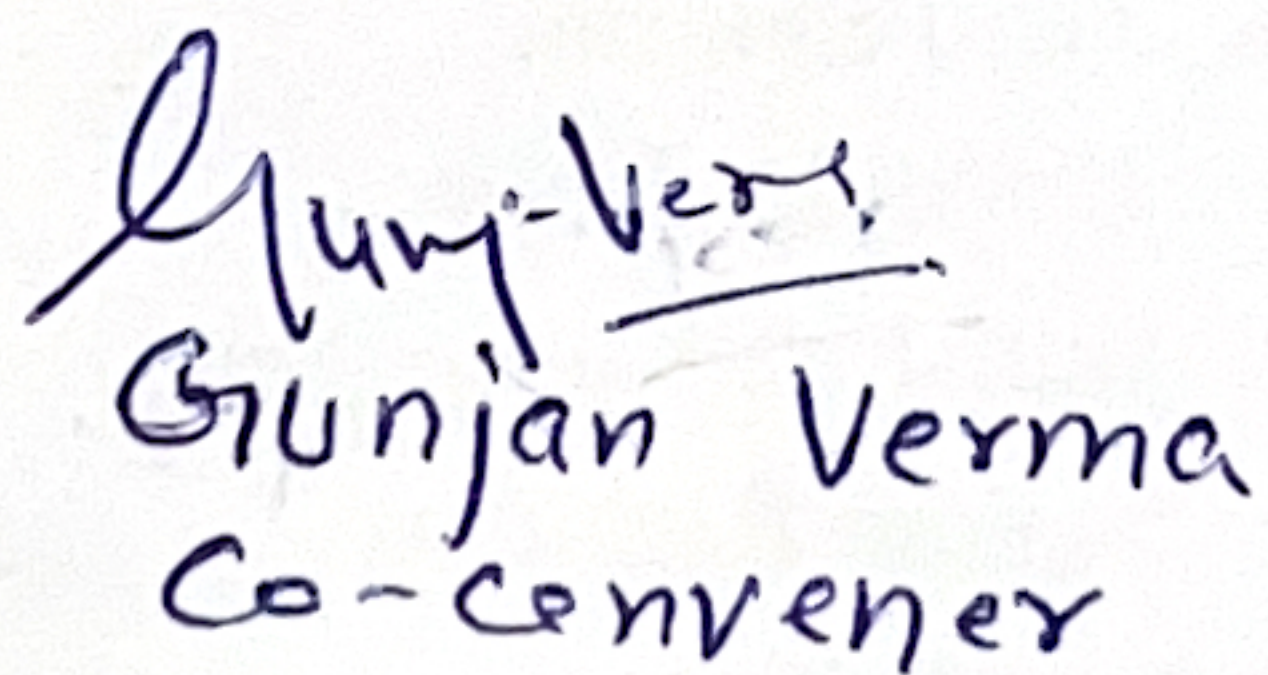 Gunj-Verma
Gunjan Verma
Co-Convener